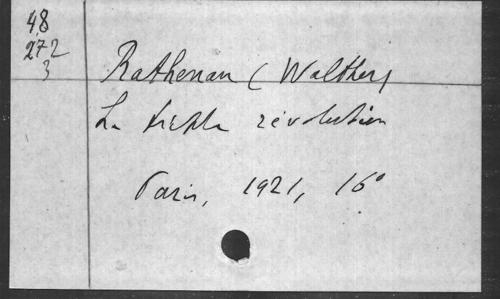 48
272
3
Rathenau (Walther)
La triple révolution
Paris, 1921, 16°